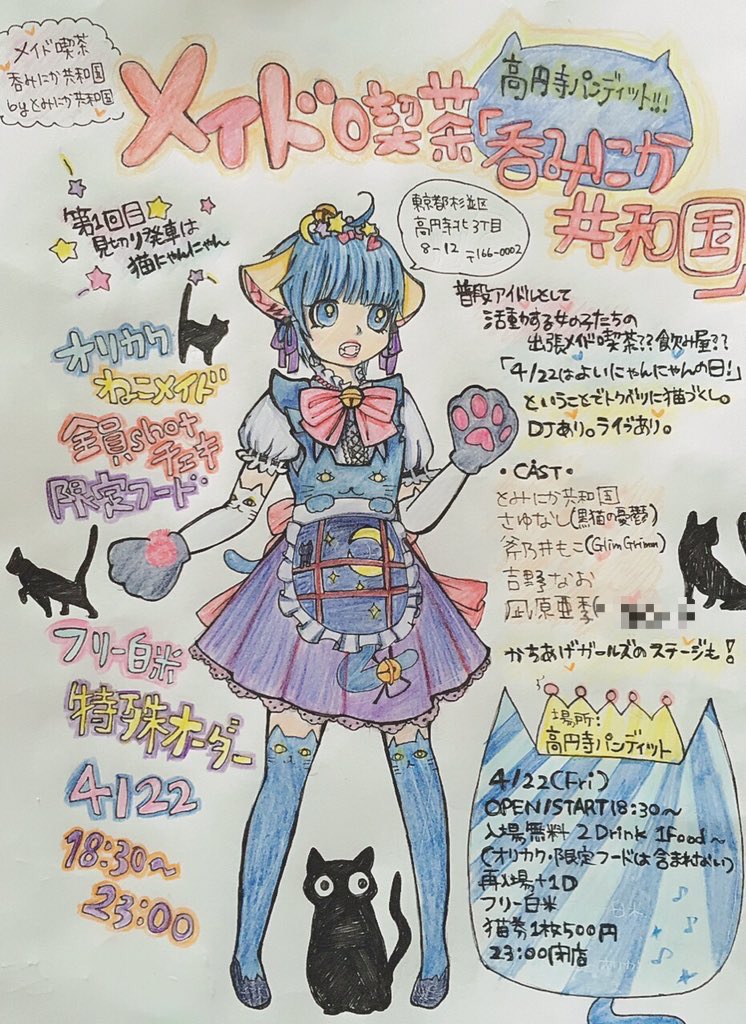 メイド喫茶
呑みにか共和国
byとみにか共和国
メイド喫茶
高円寺パンディット!!!
「呑みにか
共和国」
第1回目
見切り発車は
猫にゃんにゃん
東京都杉並区
高円寺北3丁目
8-12 〒166-0002
オリカク
ねこメイド
全員shot
チェキ
限定フード
普段アイドルとして
活動する女の子たちの
出張メイド喫茶??飲み屋??
「4/22はよいにゃんにゃんの日!」
ということでトクベツに猫づくし。
DJあり。ライヴあり。
・CAST・
とみにか共和国
さゆなし(黒猫の憂鬱)
斧乃井もこ(GlimGrimm)
吉野なお
凪原亜季(
かちあげガールズのステージも!
フリー白米
特殊オーダー
4/22
18:30〜
23:00
場所:
高円寺パンディット
4/22(Fri)
OPEN/START18:30〜
入場無料 2Drink 1Food〜
(オリカク・限定フードは含まれない)
再入場+1D
フリー白米
猫券1枚500円
23:00閉店